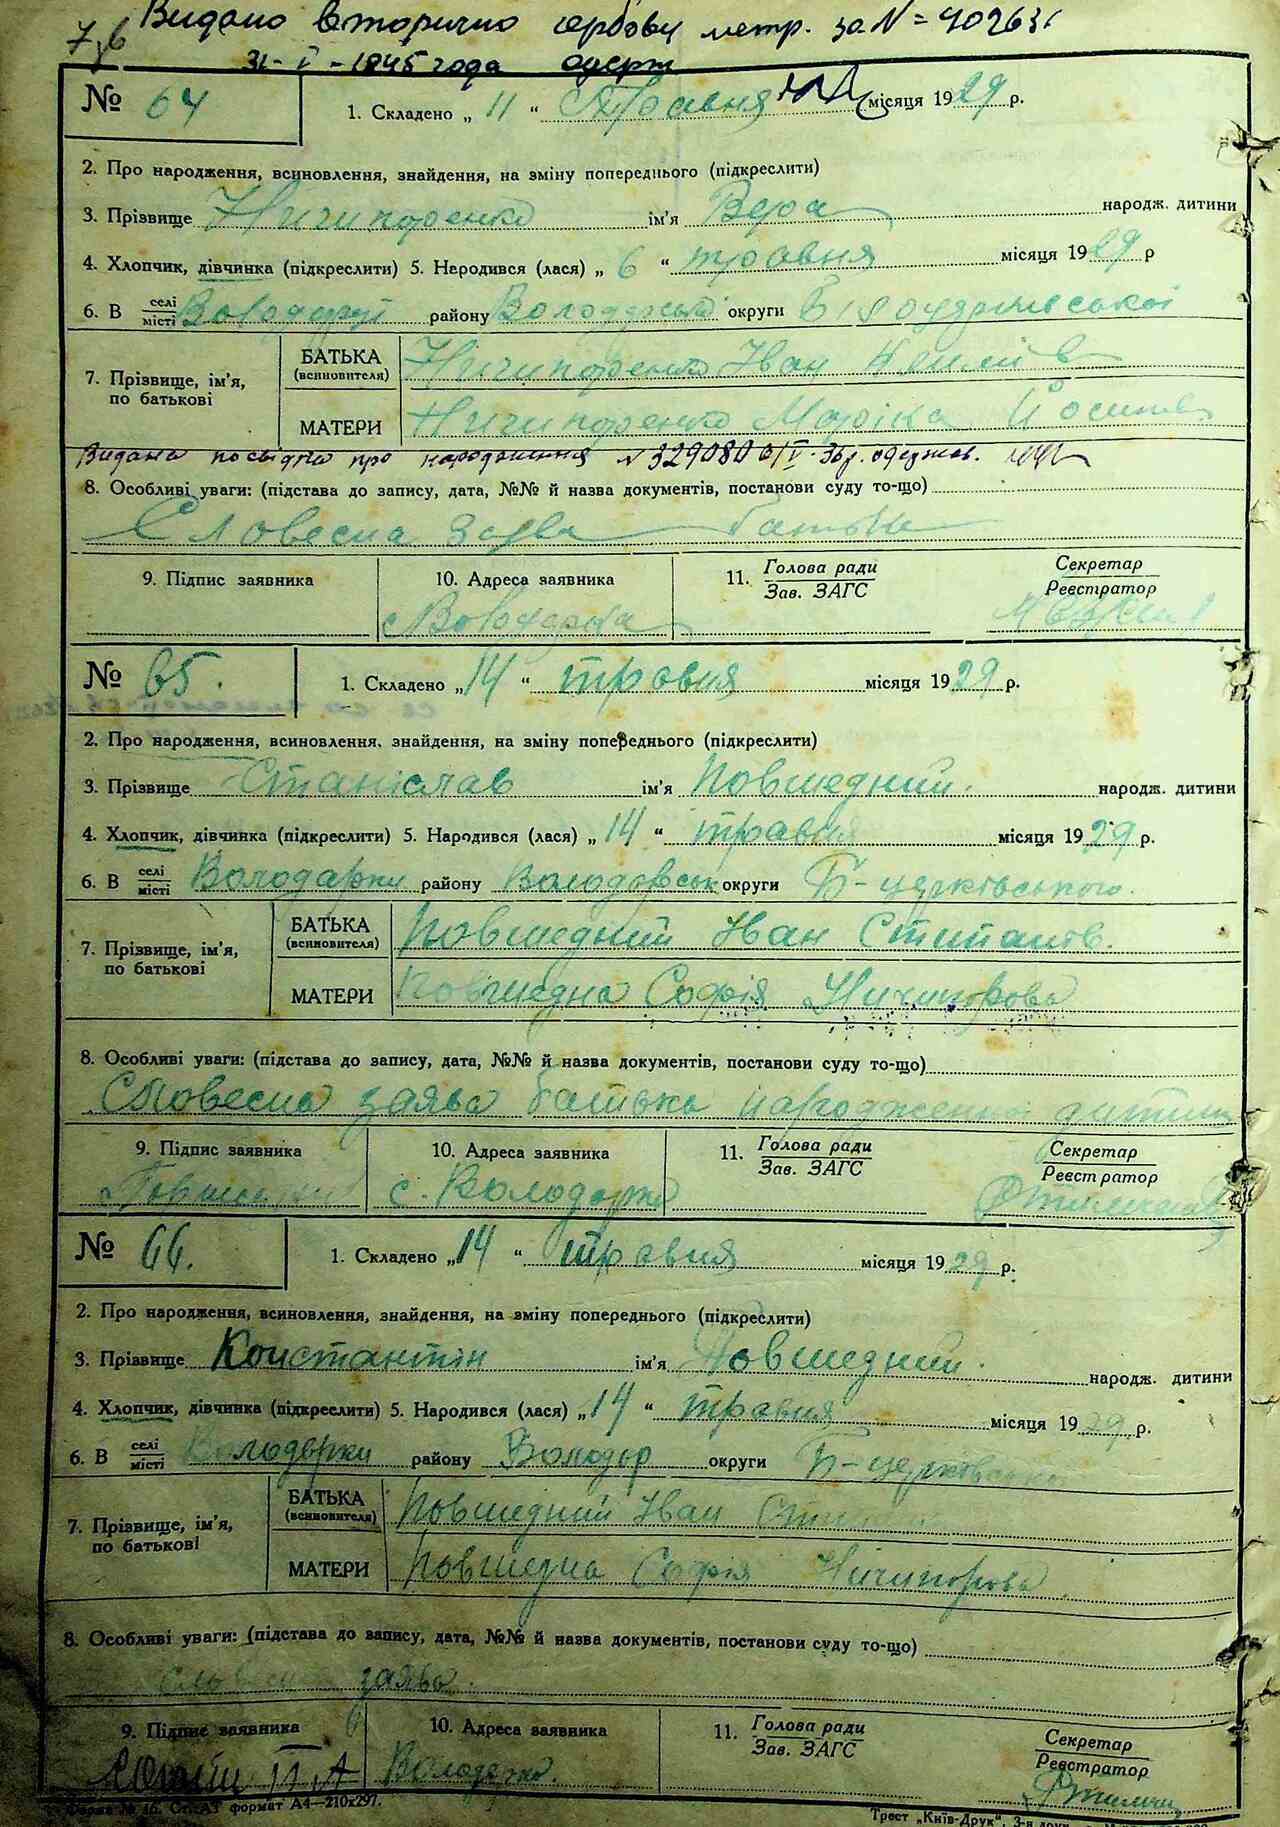 Видано вторично гербову метр. за N = 402631
31 - V - 1945 года одерж
№ 64
1. Складено „ 11 “ Травня місяця 1929 р.
2. Про народження, всиновлення, знайдення, на зміну попереднього (підкреслити)
3. Прізвище Ничипоренко ім'я Вера народж. дитини
4. Хлопчик, дівчинка (підкреслити) 5. Народився (лася) „ 6 “ травня місяця 1929 р
6. В селі місті Володарці району Володарськ округи Б церківської
7. Прізвище, ім'я, по батькові
БАТЬКА (всиновителя) Ничипоренко Іван
МАТЕРИ Ничипоренко Марійка Йосипів
Видана посвідка про народження № 329080 одержав.
8. Особливі уваги: (підстава до запису, дата, №№ й назва документів, постанови суду то-що)
Словесна заява батька
9. Підпис заявника
10. Адреса заявника
11. Голова ради Зав. ЗАГС
Секретар Реєстратор
Володарка
№ 65.
1. Складено „ 14 “ травня місяця 1929 р.
2. Про народження, всиновлення, знайдення, на зміну попереднього (підкреслити)
3. Прізвище Станіслав ім'я Повшедний. народж. дитини
4. Хлопчик, дівчинка (підкреслити) 5. Народився (лася) „ 14 “ травня місяця 1929 р.
6. В селі місті Володарки району Володарськ округи Б-церківського.
7. Прізвище, ім'я, по батькові
БАТЬКА (всиновителя) Повшедний Іван Степанів.
МАТЕРИ Повшедна Софія Ничипорова
8. Особливі уваги: (підстава до запису, дата, №№ й назва документів, постанови суду то-що)
Словесна заява батька народженої дитини
9. Підпис заявника
10. Адреса заявника
11. Голова ради Зав. ЗАГС
Секретар Реєстратор
с. Володарка
№ 66.
1. Складено „ 14 “ травня місяця 1929 р.
2. Про народження, всиновлення, знайдення, на зміну попереднього (підкреслити)
3. Прізвище Константін ім'я Повшедний. народж. дитини
4. Хлопчик, дівчинка (підкреслити) 5. Народився (лася) „ 14 “ травня місяця 1929 р.
6. В селі місті Володарки району Володар округи Б-церковської
7. Прізвище, ім'я, по батькові
БАТЬКА (всиновителя) Повшедний Іван
МАТЕРИ Повшедна Софія Нічипорова
8. Особливі уваги: (підстава до запису, дата, №№ й назва документів, постанови суду то-що)
заява.
9. Підпис заявника
10. Адреса заявника
11. Голова ради Зав. ЗАГС
Секретар Реєстратор
Володарка.
Форма № 16. СтАТ формат А4—210х297.
Трест „Київ-Друк“, 3-я друк.